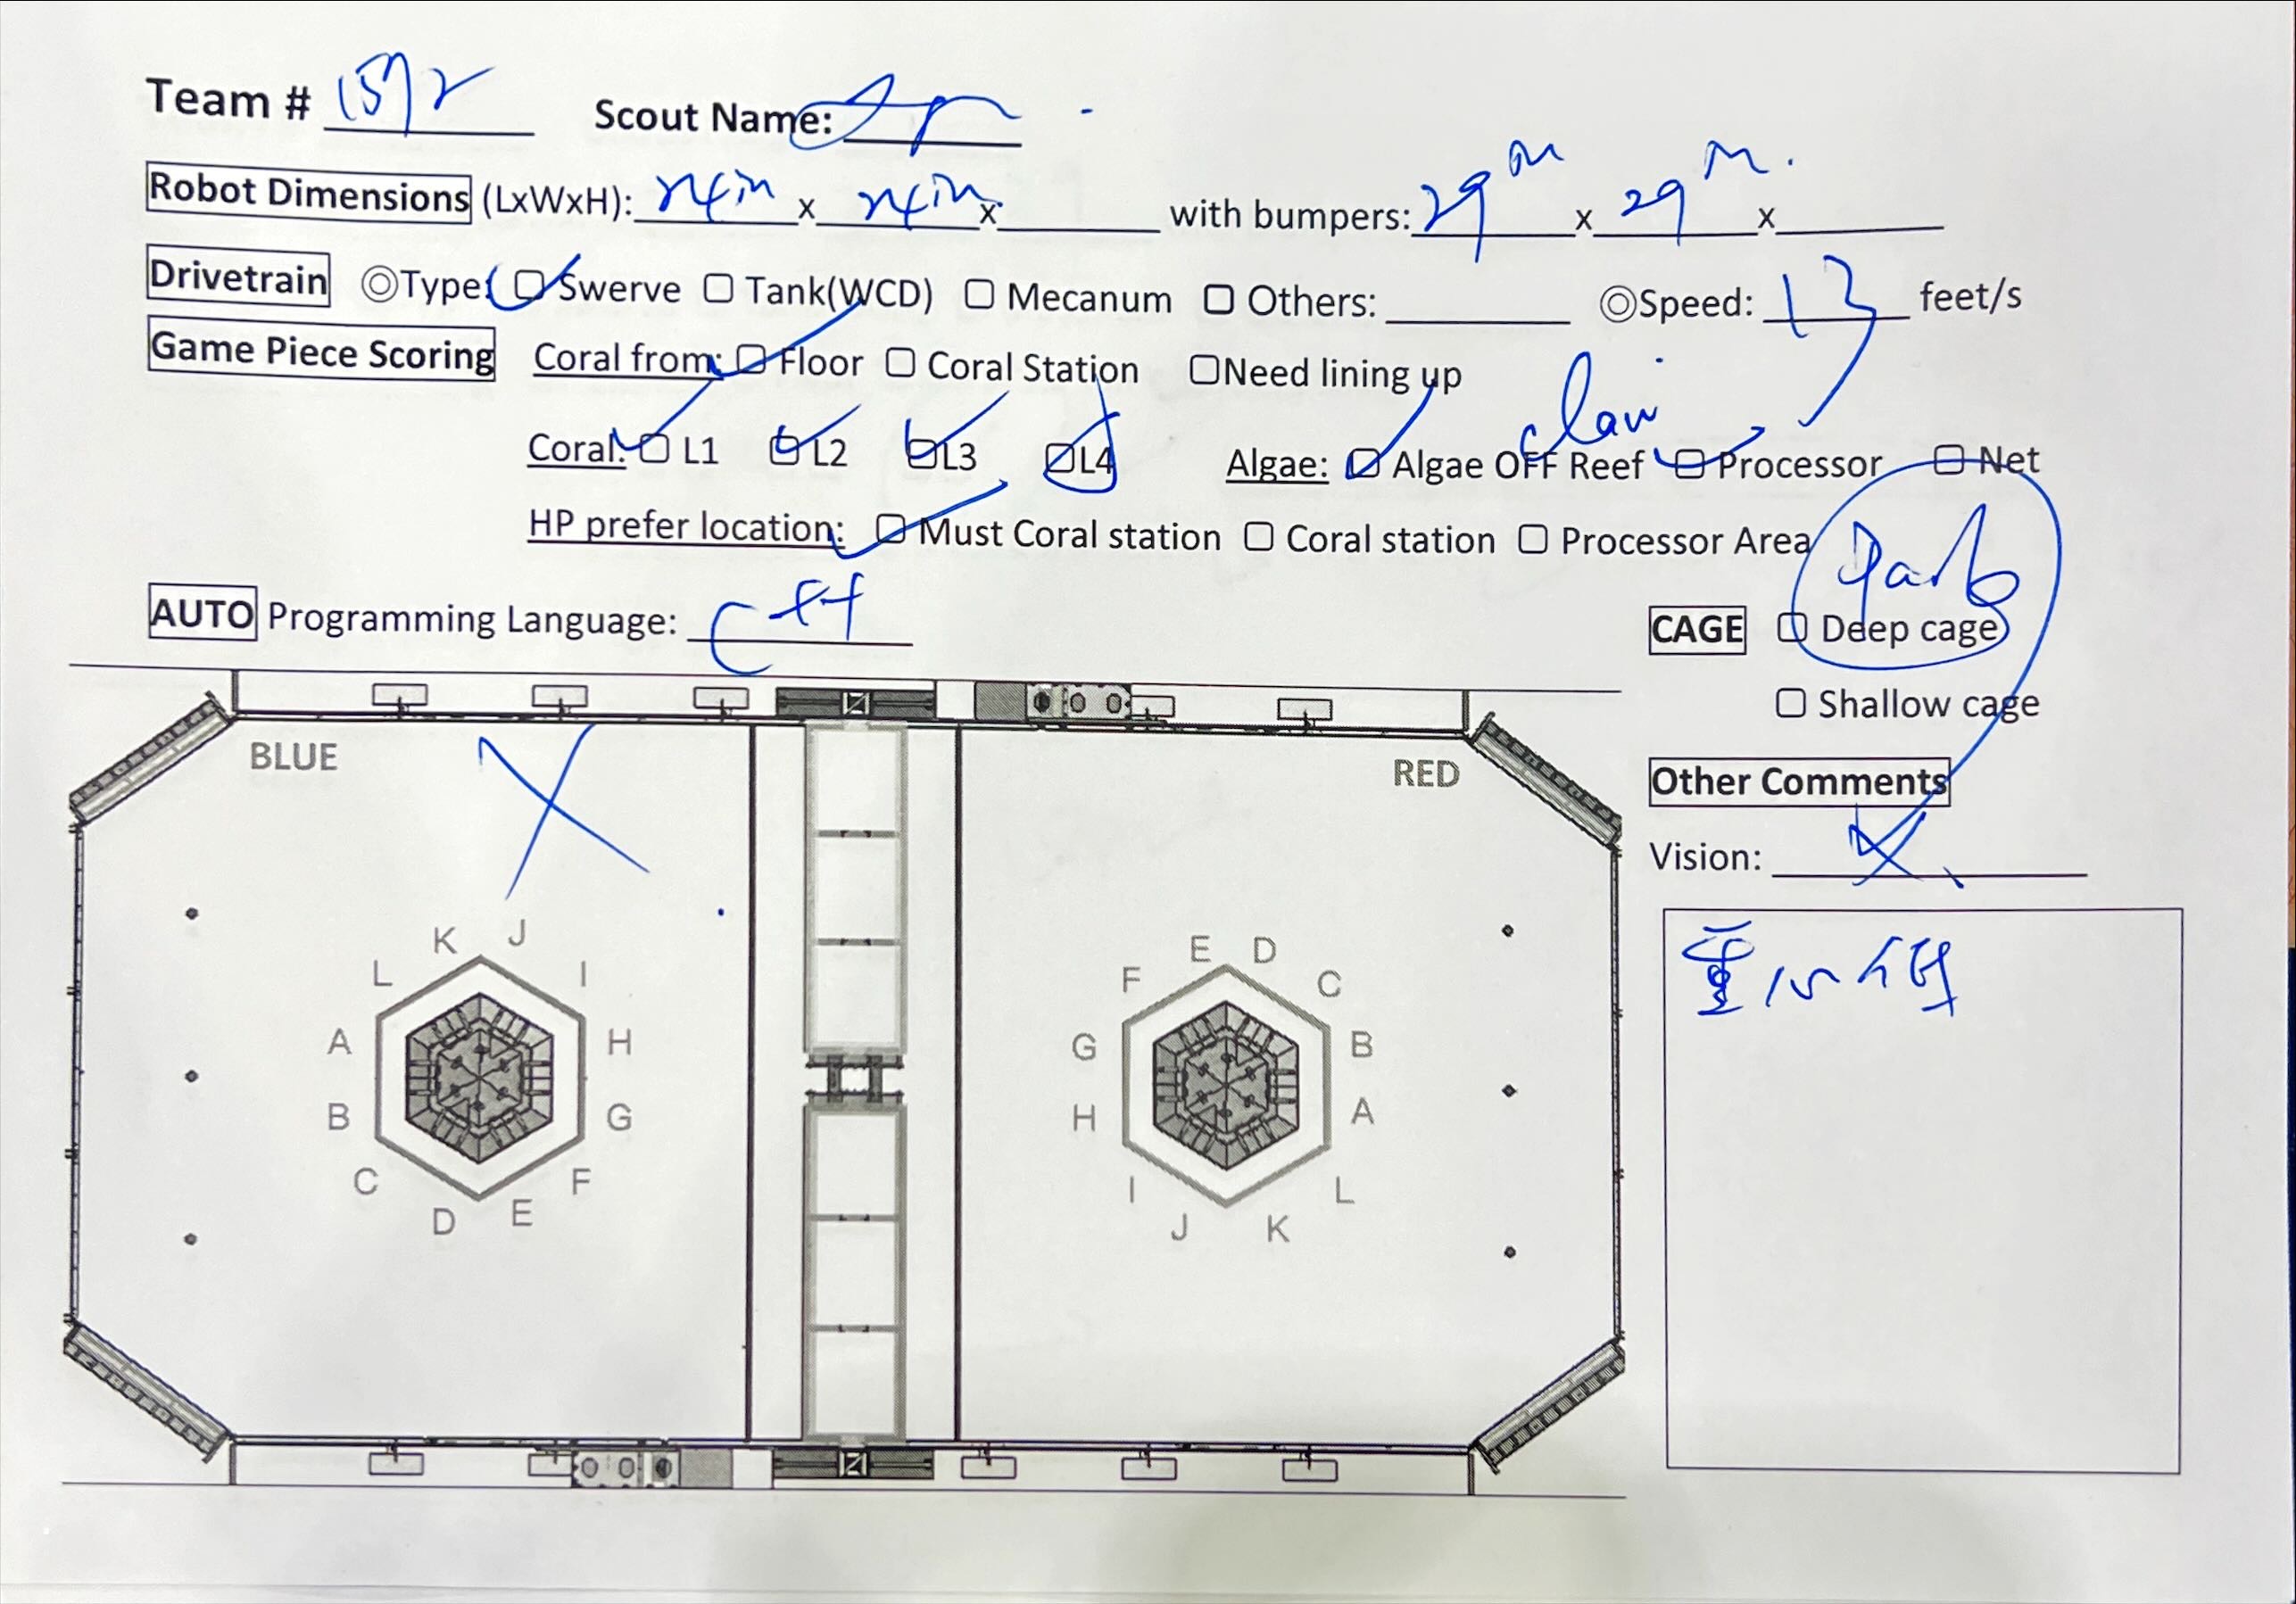 Team # 1572 Scout Name:
Robot Dimensions (LxWxH): x x with bumpers: 29 in x 29 in. x
Drivetrain ◎Type: Swerve Tank(WCD) Mecanum Others: ◎Speed: 13 feet/s
Game Piece Scoring Coral from: Floor Coral Station Need lining up
claw
Coral: L1 L2 L3 L4 Algae: Algae OFF Reef Processor Net
HP prefer location: Must Coral station Coral station Processor Area
park
AUTO Programming Language: C++ CAGE Deep cage
Shallow cage
BLUE RED
Other Comments
Vision: X
重心低
K J E D
L I F C
A H G B
B G H A
C F I L
D E J K